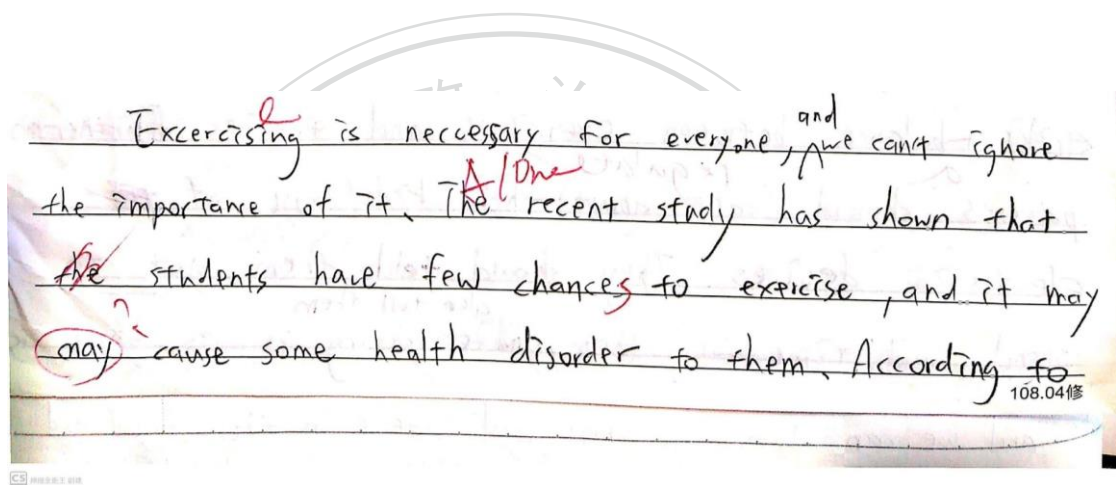 e
and
Excercising is neccessary for everyone, we can't ignore
A/One
the importance of it. The recent study has shown that
the students have few chances to exercise, and it may
?
may cause some health disorder to them. According to
108.04修
CS